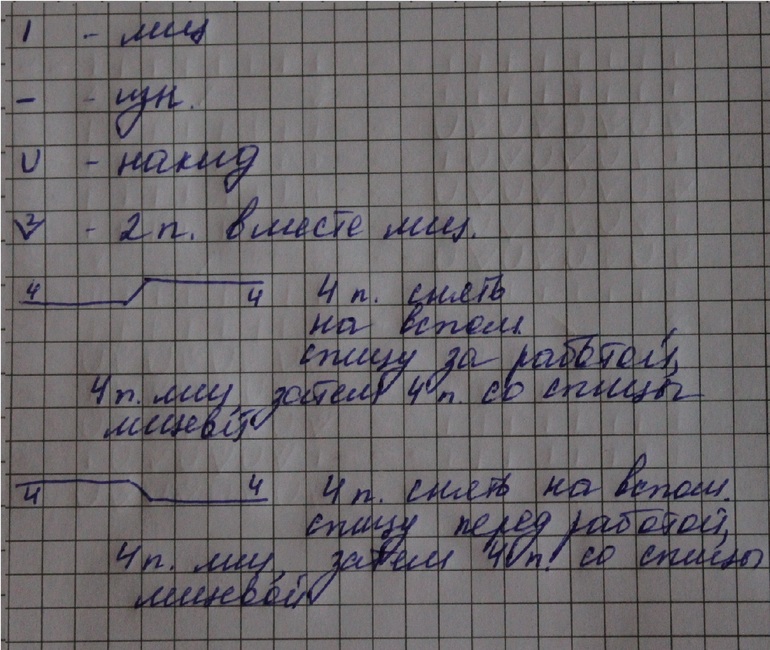 I - лиц
- - изн.
U - накид
2 - 2 п. вместе лиц.
4 4 4 п. снять
на вспом.
спицу за работой,
4 п. лиц, затем 4 п. со спицы
лицевой
4 4 4 п. снять на вспом.
спицу перед работой,
4 п. лиц, затем 4 п. со спицы
лицевой